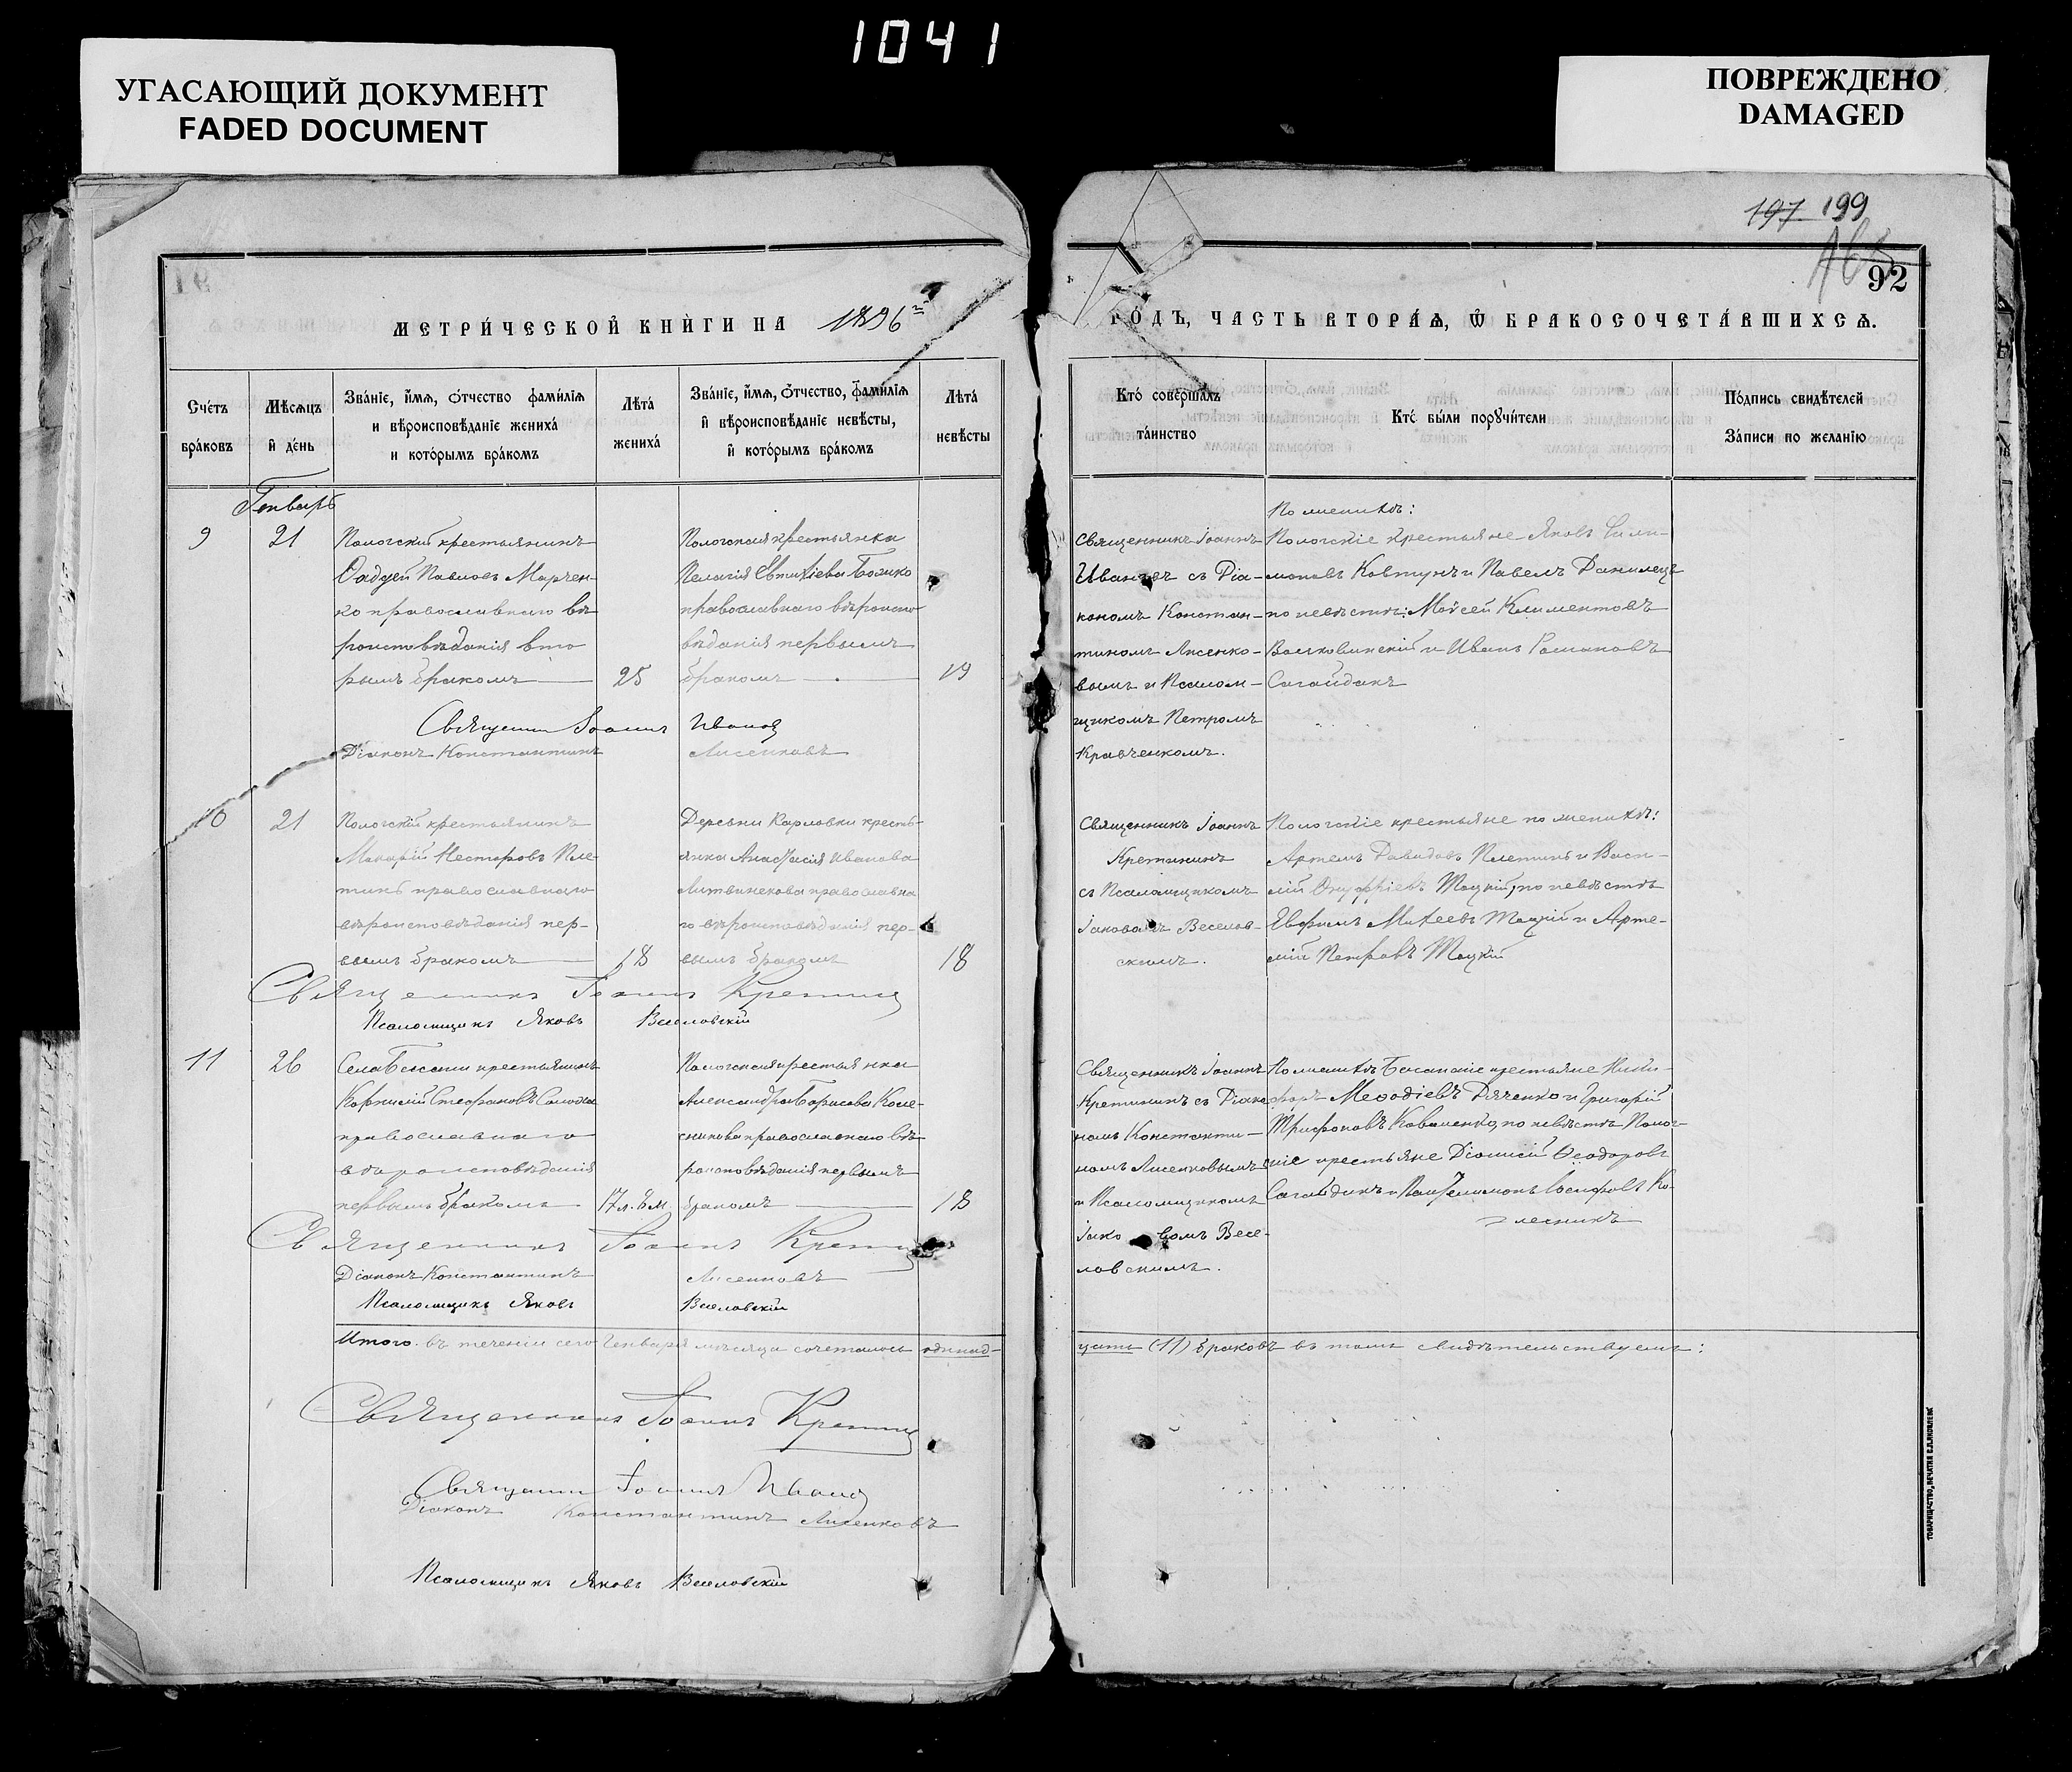 1041
УГАСАЮЩИЙ ДОКУМЕНТ
FADED DOCUMENT
ПОВРЕЖДЕНО
DAMAGED
197 199
92
МЕТРИ́ЧЕСКОЙ КНИ́ГИ НА 1896
ГО́ДЪ, ЧАСТЬ ВТОРА́Ѧ, Ѡ БРАКОСОЧЕТА́ВШИХСѦ.
Сче́тъ бра́ковъ
Мѣ́сѧцъ и҆ де́нь
Зва́нїе, и҆́мѧ, ѻ҆́тчество фами́лїѧ и вѣроисповѣ́данїе жениха́ и кото́рымъ бра́комъ
Лѣ́та жениха́
Зва́нїе, и҆́мѧ, ѻ҆́тчество, фами́лїѧ и҆ вѣроисповѣ́данїе невѣ́сты, и҆ кото́рымъ бра́комъ
Лѣ́та невѣ́сты
Кто́ соверша́лъ та́инство
Кто́ бы́ли порꙋчи́тели
По́дпись свидѣ́телей За́писи по жела́нїю
Генварь
9
21
Пологскій крестьянинъ
Фаддей Павловъ Марчен-
ко православнаго вѣ-
роисповѣданія вто
рымъ бракомъ
25
Пологская крестьянка
Пелагія Евтихіева Божко
православнаго вѣроиспо
вѣданія первымъ
бракомъ
19
Священникъ Іоаннъ
Ивановъ съ Діа-
кономъ Констан-
тиномъ Лисенко-
вымъ и Псалом-
щикомъ Петромъ
Кравченкомъ.
По женихѣ:
Пологскіе крестьяне Яковъ Фили-
моновъ Ковтунъ и Павелъ Данилецъ
по невѣстѣ: Моѵсей Климентовъ
и Иванъ Романовъ
Сагайдакъ
Священни Іоаннъ Иванов
Діаконъ Константинъ Лисенковъ
10
21
Пологскій крестьянинъ
Макарій Несторовъ Пле
тинь православнаго
вѣроисповѣданія пер-
вымъ бракомъ
18
Деревни Карловки кресть-
янка Анастасія Иванова
Литвинекова православна
го вѣроисповѣданія пер-
вымъ бракомъ
18
Священникъ Іоаннъ
Кретининъ
съ Псаломщикомъ
Іаковомъ Веселов-
скимъ.
Пологскіе крестьяне по женихѣ:
Артемъ Давидовъ Плетинь и Васи-
лій Онуфріевъ Тоцкій, по невѣстѣ
Евфимъ Михеевъ Тоцкій и Арте-
мій Петровъ Тоцкій
Священникъ Іоаннъ Кретинин
Псаломщикъ Яковъ Веселовскій
11
26
Села Басани крестьянинъ
Корнилій Стефановъ Солодка
православнаго
вѣроисповѣданія
первымъ бракомъ
17 л. 8 м.
Пологская крестьянка
Александра Борисова Коле-
сникова православнаго вѣ-
роисповѣданія первымъ
бракомъ
18
Священникъ Іоаннъ
Кретининъ съ Діако
номъ Константи-
номъ Лисенковымъ
и Псаломщикомъ
Іаковомъ Весе-
ловскимъ.
По женихѣ Басанскіе крестьяне Ники-
форъ Меѳодіевъ Дяченко и Григорій
Трифоновъ Коваленко, по невѣстѣ Полог-
скіе крестьяне Діонисій Ѳеодоровъ
Сагайдакъ и Пантелимонъ Іосифовъ Ко-
лесникъ
Священникъ Іоаннъ Кретинин
Діаконъ Константинъ Лисенковъ
Псаломщикъ Яковъ Веселовскій
Итого въ теченіи сего Генваря мѣсяца сочеталось одинад-
цать (11) браковъ въ томъ свидѣтельствуемъ:
Священникъ Іоаннъ Кретинин
Священни Іоаннъ Иванов
Діаконъ Константинъ Лисенковъ
Псаломщикъ Яковъ Веселовскій